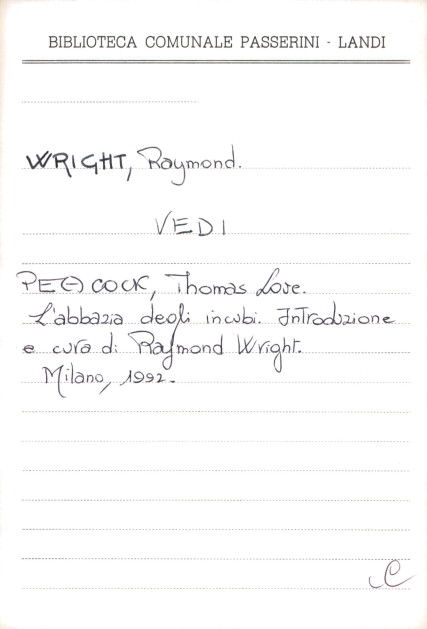 BIBLIOTECA COMUNALE PASSERINI - LANDI
WRIGHT, Raymond.
VEDI
PEACOCK, Thomas Love.
L'abbazia degli incubi. Introduzione
e cura di Raymond Wright.
Milano, 1992.
C